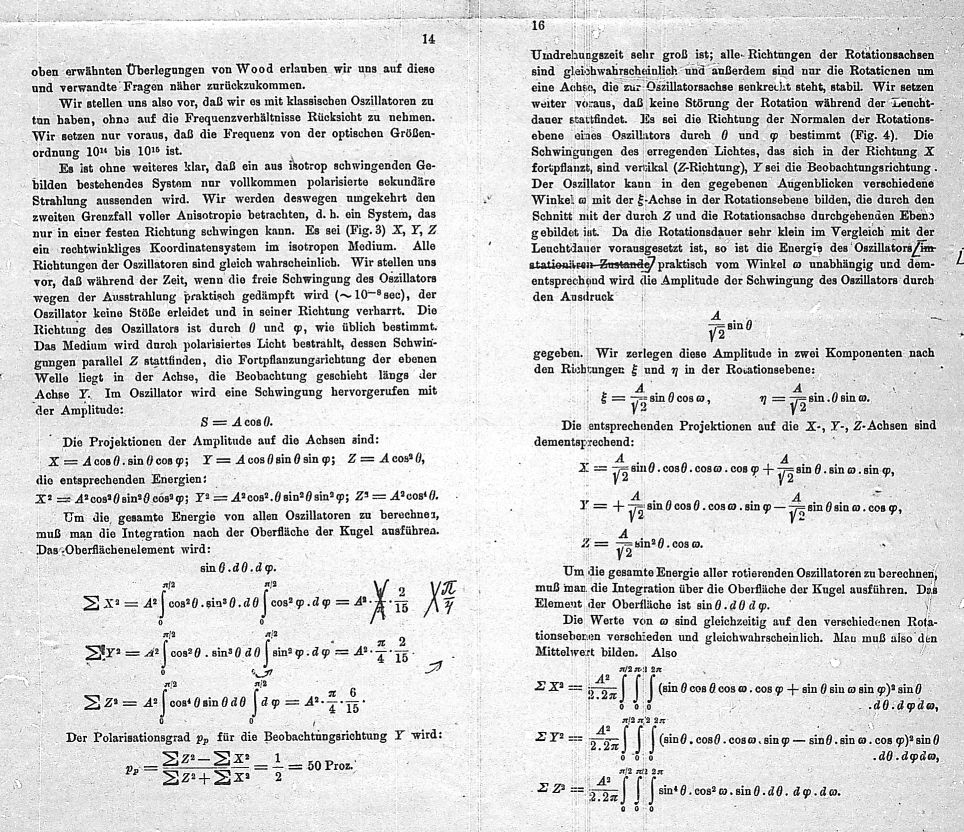 14
oben erwähnten Überlegungen von Wood erlauben wir uns auf diese
und verwandte Fragen näher zurückzukommen.
Wir stellen uns also vor, daß wir es mit klassischen Oszillatoren zu
tun haben, ohne auf die Frequenzverhältnisse Rücksicht zu nehmen.
Wir setzen nur voraus, daß die Frequenz von der optischen Größen-
ordnung 10¹⁴ bis 10¹⁵ ist.
Es ist ohne weiteres klar, daß ein aus isotrop schwingenden Ge-
bilden bestehendes System nur vollkommen polarisierte sekundäre
Strahlung aussenden wird. Wir werden deswegen umgekehrt den
zweiten Grenzfall voller Anisotropie betrachten, d. h. ein System, das
nur in einer festen Richtung schwingen kann. Es sei (Fig. 3) X, Y, Z
ein rechtwinkliges Koordinatensystem im isotropen Medium. Alle
Richtungen der Oszillatoren sind gleich wahrscheinlich. Wir stellen uns
vor, daß während der Zeit, wenn die freie Schwingung des Oszillators
wegen der Ausstrahlung praktisch gedämpft wird (∼ 10⁻⁸ sec), der
Oszillator keine Stöße erleidet und in seiner Richtung verharrt. Die
Richtung des Oszillators ist durch θ und φ, wie üblich bestimmt.
Das Medium wird durch polarisiertes Licht bestrahlt, dessen Schwin-
gungen parallel Z stattfinden, die Fortpflanzungsrichtung der ebenen
Welle liegt in der Achse, die Beobachtung geschieht längs der
Achse Y. Im Oszillator wird eine Schwingung hervorgerufen mit
der Amplitude:
S = A cos θ.
Die Projektionen der Amplitude auf die Achsen sind:
X = A cos θ . sin θ cos φ; Y = A cos θ sin θ sin φ; Z = A cos² θ,
die entsprechenden Energien:
X² = A² cos² θ sin² θ cos² φ; Y² = A² cos² . θ sin² θ sin² φ; Z² = A² cos⁴ θ.
Um die gesamte Energie von allen Oszillatoren zu berechnen,
muß man die Integration nach der Oberfläche der Kugel ausführen.
Das Oberflächenelement wird:
sin θ . d θ . d φ.
∑ X² = A² ∫₀^{π/2} cos² θ . sin³ θ . d θ ∫₀^{π/2} cos² φ . d φ = A² · · 2/15 π/4
∑ Y² = A² ∫₀^{π/2} cos² θ . sin³ θ d θ ∫₀^{π/2} sin² φ . d φ = A² · π/4 · 2/15 ·
∑ Z² = A² ∫₀^{π/2} cos⁴ θ sin θ d θ ∫₀^{π/2} d φ = A² · π/4 · 6/15 ·
Der Polarisationsgrad p_p für die Beobachtungsrichtung Y wird:
p_p = (∑ Z² − ∑ X²)/(∑ Z² + ∑ X²) = 1/2 = 50 Proz.
16
Umdrehungszeit sehr groß ist; alle Richtungen der Rotationsachsen
sind gleichwahrscheinlich und außerdem sind nur die Rotationen um
eine Achse, die zur Oszillatorsachse senkrecht steht, stabil. Wir setzen
weiter voraus, daß keine Störung der Rotation während der Leucht-
dauer stattfindet. Es sei die Richtung der Normalen der Rotations-
ebene eines Oszillators durch θ und φ bestimmt (Fig. 4). Die
Schwingungen des erregenden Lichtes, das sich in der Richtung X
fortpflanzt, sind vertikal (Z-Richtung), Y sei die Beobachtungsrichtung.
Der Oszillator kann in den gegebenen Augenblicken verschiedene
Winkel ω mit der ξ-Achse in der Rotationsebene bilden, die durch den
Schnitt mit der durch Z und die Rotationsachse durchgehenden Ebene
gebildet ist. Da die Rotationsdauer sehr klein im Vergleich mit der
Leuchtdauer vorausgesetzt ist, so ist die Energie des Oszillators im
stationären Zustande praktisch vom Winkel ω unabhängig und dem-
entsprechend wird die Amplitude der Schwingung des Oszillators durch
den Ausdruck
A/√2 sin θ
gegeben. Wir zerlegen diese Amplitude in zwei Komponenten nach
den Richtungen ξ und η in der Rotationsebene:
ξ = A/√2 sin θ cos ω, η = A/√2 sin . θ sin ω.
Die entsprechenden Projektionen auf die X-, Y-, Z-Achsen sind
dementsprechend:
X = A/√2 sin θ . cos θ . cos ω . cos φ + A/√2 sin θ . sin ω . sin φ,
Y = + A/√2 sin θ cos θ . cos ω . sin φ − A/√2 sin θ sin ω . cos φ,
Z = A/√2 sin² θ . cos ω.
Um die gesamte Energie aller rotierenden Oszillatoren zu berechnen,
muß man die Integration über die Oberfläche der Kugel ausführen. Das
Element der Oberfläche ist sin θ . d θ d φ.
Die Werte von ω sind gleichzeitig auf den verschiedenen Rota-
tionsebenen verschieden und gleichwahrscheinlich. Man muß also den
Mittelwert bilden. Also
Σ X² = A²/2.2π ∫₀^{π/2} ∫₀^{π/2} ∫₀^{2π} (sin θ cos θ cos ω . cos φ + sin θ sin ω sin φ)² sin θ
. d θ . d φ d ω,
Σ Y² = A²/2.2π ∫₀^{π/2} ∫₀^{π/2} ∫₀^{2π} (sin θ . cos θ . cos ω . sin φ − sin θ . sin ω . cos φ)² sin θ
. d θ . d φ d ω,
Σ Z² = A²/2.2π ∫₀^{π/2} ∫₀^{π/2} ∫₀^{2π} sin⁴ θ . cos² ω . sin θ . d θ . d φ . d ω.